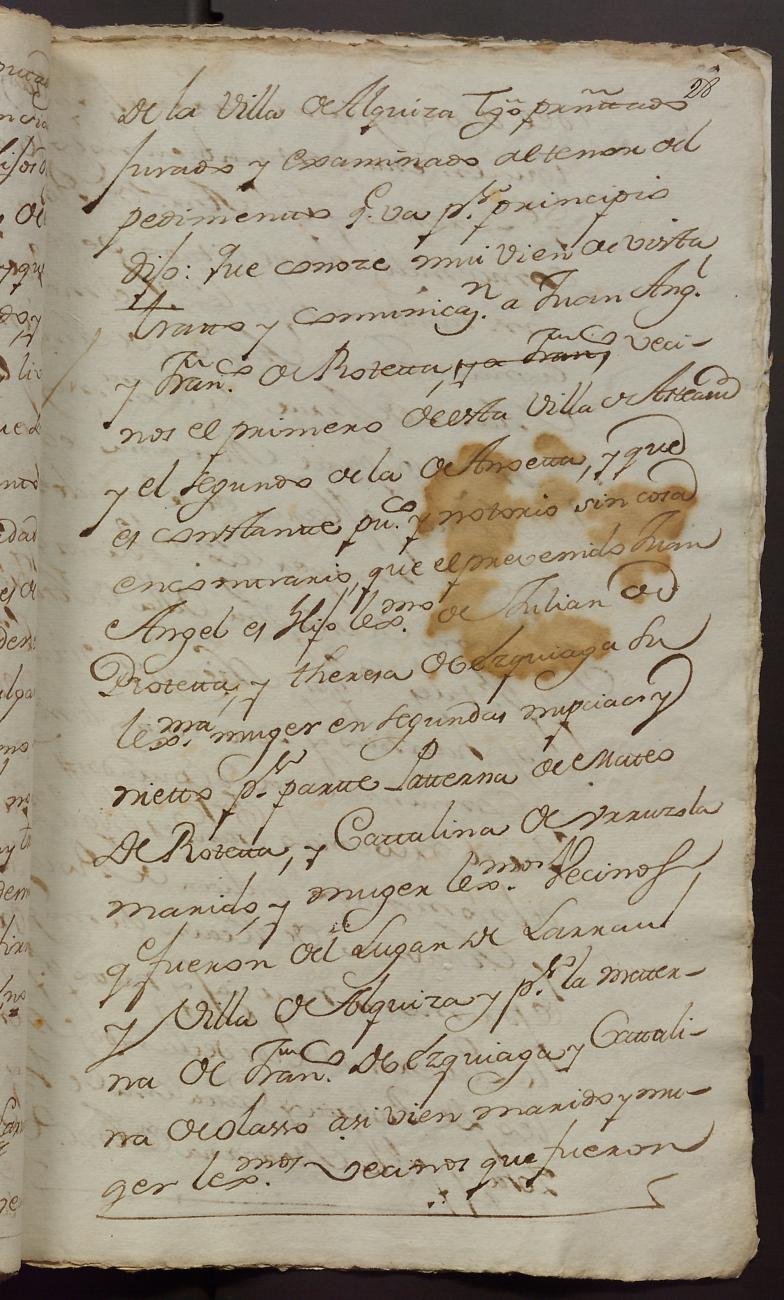 28
de la Villa de Alquiza Tgo. preñttado
Jurado y examinado al tenor del
pedimento q.e va p.r principio
dijo: que conoze mui vien de vista
tratto y comunicaz.n a Juan Ang.l
y Fran.co de Rotetta, y a Fran.co veci-
nos el primero de esta Villa de Asteasu
y el segundo de la de Anoetta, y que
es constante pu.co y notorio sin cosa
en contrario, que el prevenido Juan
Angel es Hijo lex.mo de Julian de
Rotetta, y theresa de Ezquiaga su
lex.ma muger en segundas nupcias y
nietto p.r partte Patterna de Mateo
de Rotetta, y Cattalina de Urruzola
marido, y muger lex.mos Vecinos
q.e fueron del Lugar de Larraul
y Villa de Alquiza y p.r la matter-
na de Fran.co de Ezquiaga y Cattali-
na de olasso asi vien marido y mu-
ger lex.mos vecinos que fueron